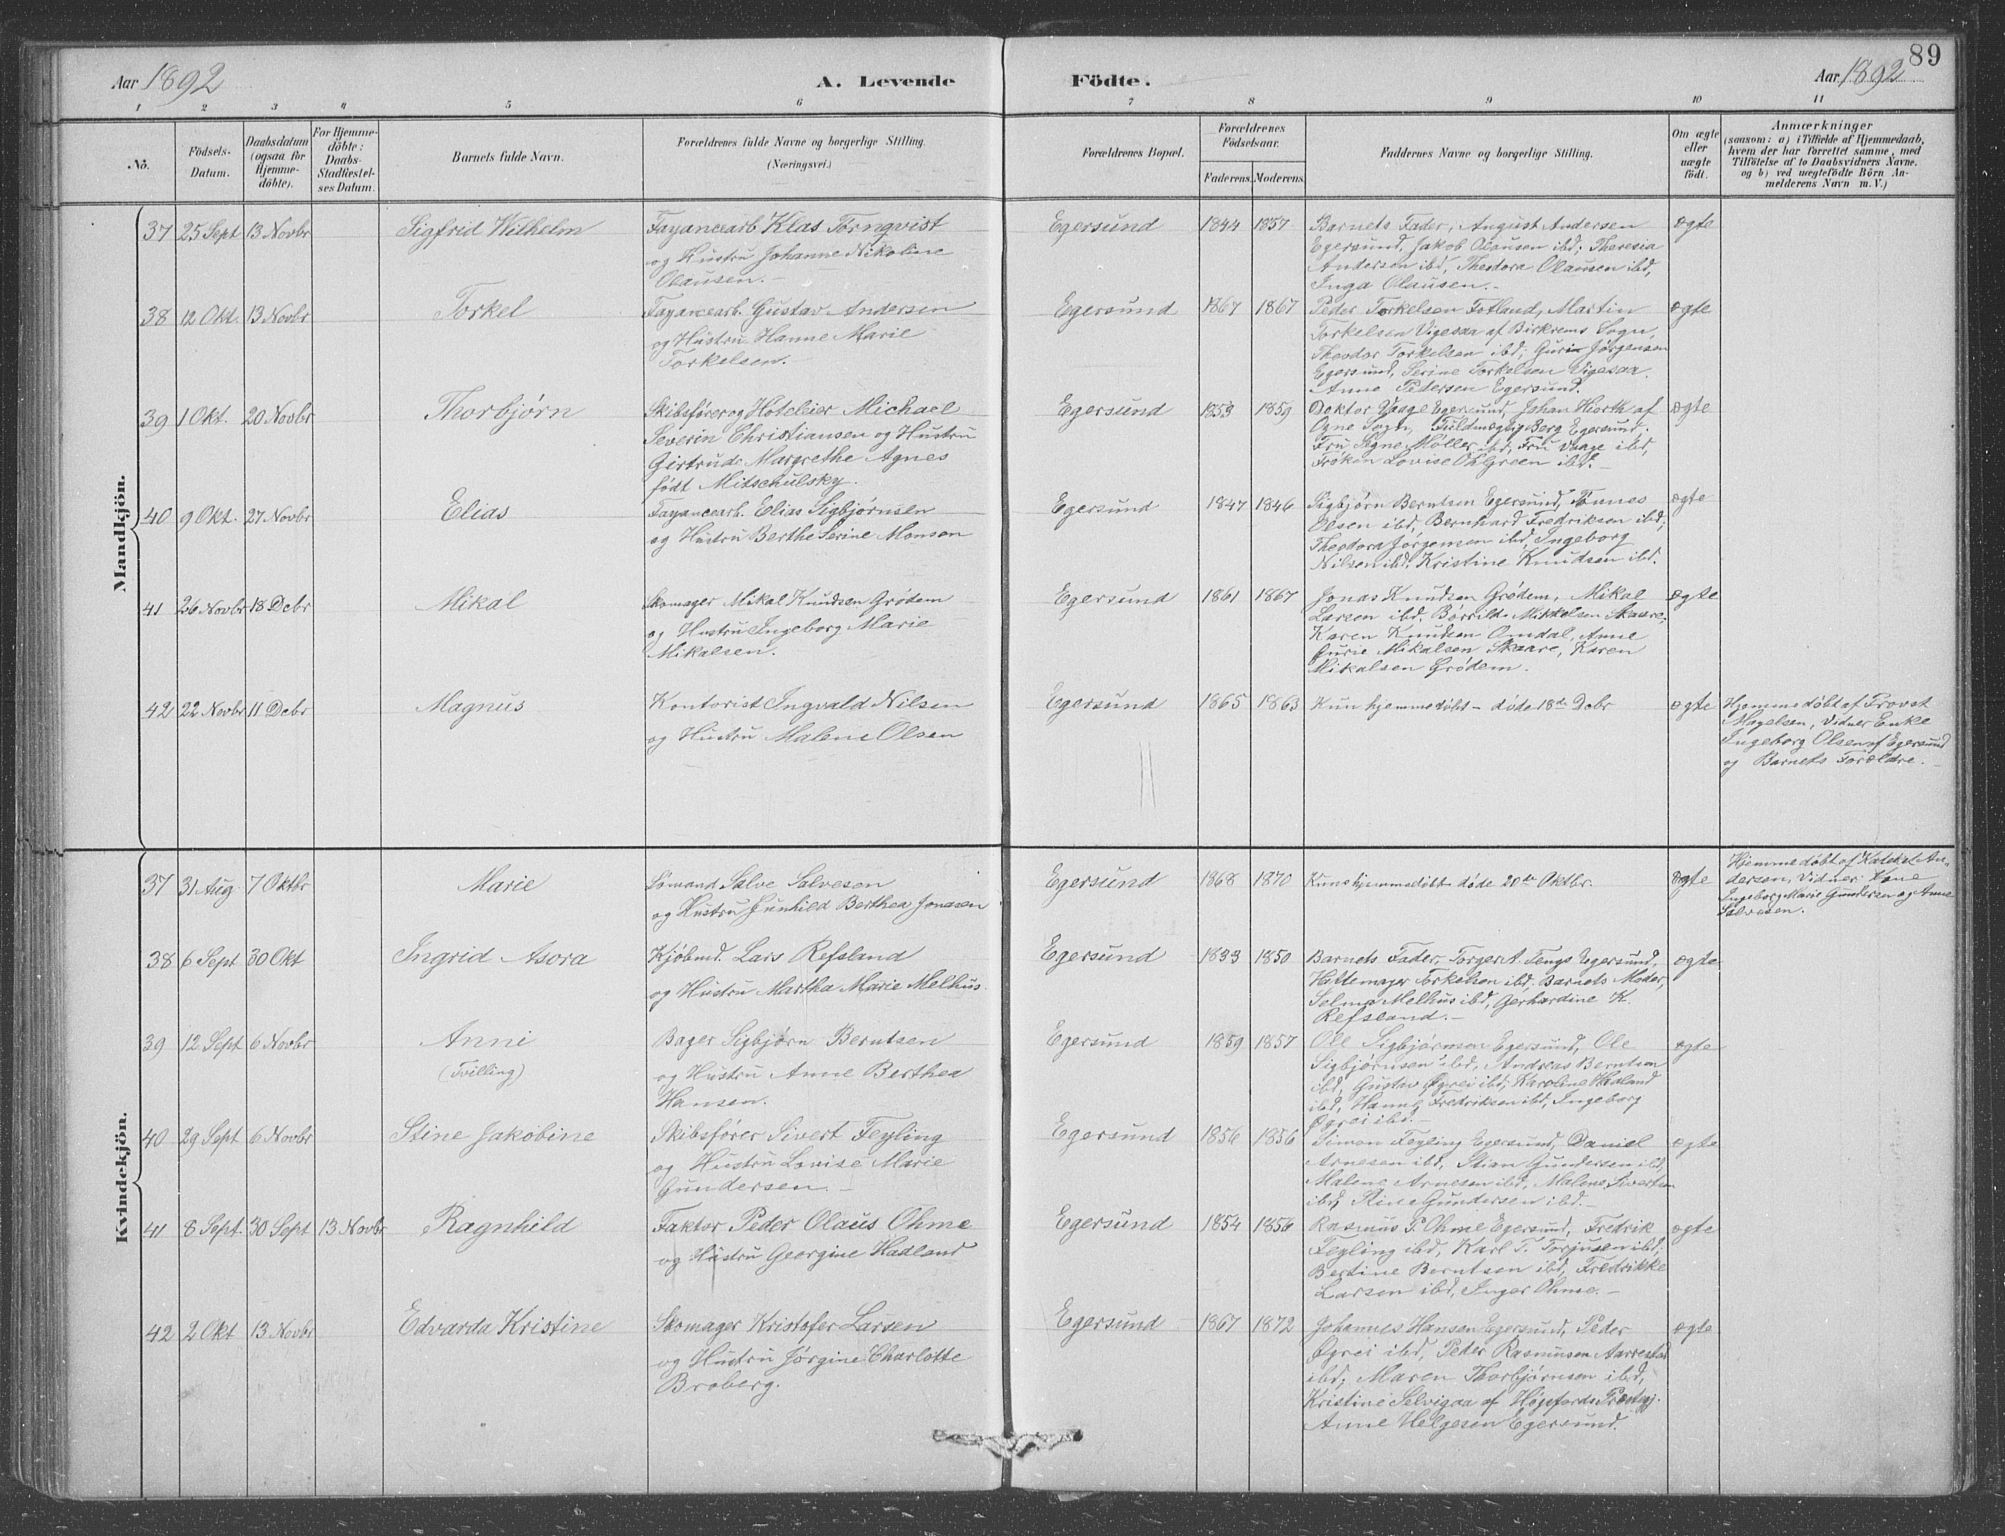 89
Aar 1892 A. Levende Födte. Aar 1892
1 2 3 4 5 6 7 8 9 10 11
No. Födsels-Datum. Daabsdatum (ogsaa for Hjemme-döbte). For Hjemme-döbte: Daabs-Stadfæstel-ses Datum. Barnets fulde Navn. Forældrenes fulde Navne og borgerlige Stilling. (Næringsvei.) Forældrenes Bopæl. Forældrenes Födselsaar. Faderens. Moderens. Faddernes Navne og borgerlige Stilling. Om ægte eller uægte födt. Anmærkninger (saasom: a) i Tilfælde af Hjemmedaab, hvem der har forrettet samme, med Tilföielse af to Daabsvidners Navne, og b) ved uægtefödte Börn An-melderens Navn m. V.)
Mandkjön.
37 25 Sept 13 Novbr Sigfrid Wilhelm Fayancearb Klas Törnqvist Egersund 1844 1857 Barnets Fader, August Andersen ægte
og Hustru Johanne Nikoline Egersund, Jakob Olausen ibd; Theresia
Olausen. Andersen ibd, Theodora Olausen ibd,
Inga Olausen.
38 12 Okt. 13 Novbr Torkel Fayancearb. Gustav Andersen Egersund 1867 1867 Peder Torkelsen Fotland, Martin ægte
og Hustru Hanne Marie Torkelsen Vigesaa af Birkrems Sogn,
Torkelsen. Theodor Torkelsen ibd; Guri Jørgensen
Egersund, Serine Torkelsen Vigesaa.
Anne Pedersen Egersund.
39 1 Okt. 20 Novbr Thorbjørn Skibsfører og Hoteleier Michael Egersund 1853 1859 Doktor Vaage Egersund, Johan Hiorth af ægte
Severin Christiansen og Hustru Ogne Sogn, Fuldmægtig Berg Egersund.
Girtrude Margrethe Agnes Fru Signe Møller ibd, Fru Vaage ibd,
født Mitschulsky. Frøken Lovise Ohlgreen ibd.
40 9 Okt. 27 Novbr Elias Fayancearb. Elias Sigbjørnsen Egersund 1847 1846 Sigbjørn Berntsen Egersund, Tønnes ægte
og Hustru Berthe Serine Monson Olsen ibd, Bernhard Fredriksen ibd;
Theodora Jørgensen ibd, Ingeborg
Nilsen ibd, Kristine Knudsen ibd.
41 26 Novbr 18 Debr Mikal Skomager Mikal Knudsen Grødem Egersund 1861 1867 Jonas Knudsen Grødem, Mikal ægte
og Hustru Ingeborg Marie Larsen ibd. Børrild Mikkelsen Skaare;
Mikalsen. Karen Knudsen Omdal, Anne
Gurie Mikalsen Skaare, Karen
Mikalsen Grødem.
42 22 Novbr 11 Debr Magnus Kontorist Ingvald Nilsen Egersund 1865 1863 Kun hjemmedøbt – døde 18de Debr ægte Hjemmedøbt af Provst
og Hustru Malene Olsen Magelsen, Vidner Enke
Ingeborg Olsen af Egersund
og Barnets Forældre.
Kvindekjön.
37 31 Aug 7 Oktbr Marie Sømand Salve Salvesen Egersund 1868 1870 Kun hjemmedøbt døde 20de Oktbr. ægte Hjemmedøbt af Kateket An-
og Hustru Gunhild Berthea Jonasen dersen, Vidner Kone
Ingeborg Marie Gundersen og Anne
Salvesen.
38 6 Sept 30 Okt Ingrid Asora Kjøbmd. Lars Refsland Egersund 1833 1850 Barnets Fader, Torger A. Tengs Egersund, ægte
og Hustru Martha Marie Melhus. Hattemager Torkelsen ibd; Barnets Moder,
Selma Melhus ibd, Gerhardine K.
Refsland.
39 12 Sept 6 Novbr Anni Bager Sigbjørn Berntsen Egersund 1859 1857 Ole Sigbjørnsen Egersund, Ole ægte
(Tvilling) og Hustru Anne Berthea Sigbjørnsen ibd, Andreas Berntsen
Hansen. ibd, Gustav Øgrei ibd; Karoline Hadland
ibd, Hanne Fredriksen ibd, Ingeborg
Øgrei ibd.
40 29 Sept 6 Novbr Stine Jakobine Skibsfører Sivert Feyling Egersund 1856 1856 Simon Feyling Egersund, Daniel ægte
og Hustru Lovise Marie Arnesen ibd, Stian Gundersen ibd,
Gundersen. Malene Arnesen ibd, Malene Sivertsen
ibd, Stine Gundersen ibd.
41 8 Sept. 30 Sept 13 Novbr Ragnhild Faktor Peder Olaus Ohme Egersund 1854 1856 Rasmus P. Ohme Egersund, Fredrik ægte
og Hustru Georgine Hadland Feyling ibd, Karl T. Torjusen ibd;
Bertine Berntsen ibd, Fredrikke
Larsen ibd, Inger Ohme.
42 2 Okt 13 Novbr Edvarda Kristine Skomager Kristofer Larsen Egersund 1867 1872 Johannes Hansen Egersund, Peder ægte
og Hustru Jørgine Charlotte Øgrei ibd, Peder Rasmusen Aarrestad
Broberg. ibd; Maren Thorbjørnsen ibd,
Kristine Selvigaa af Høgsfjords Præstegj.
Anne Helgesen Egersund.